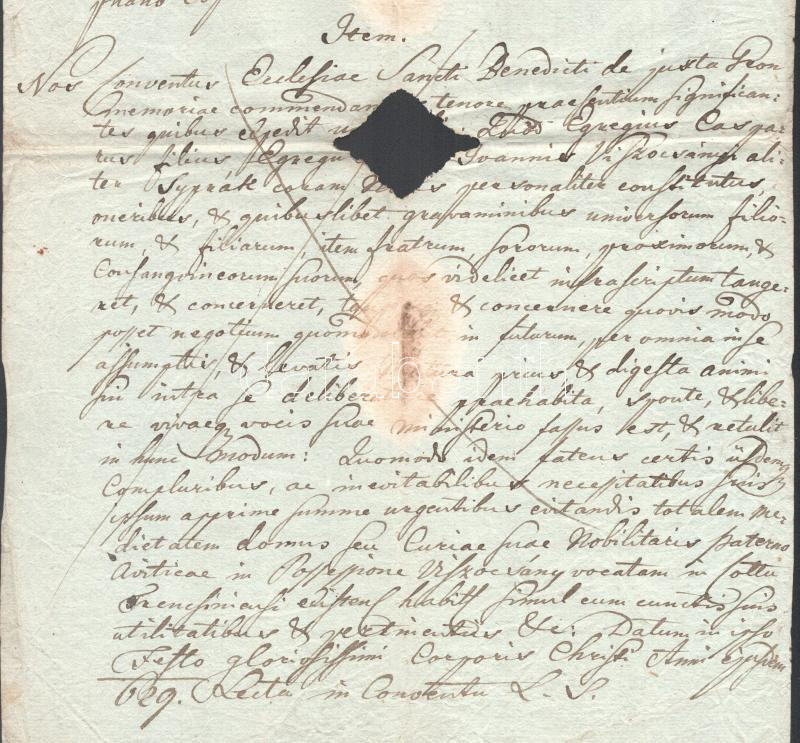 Item.
Nos Conventus Ecclesiae Sancti Benedicti de juxta Gron
memoriae commendam tenore praesentium significan-
tes quibus expedit Quod Egregius Caspa-
rus filius Egregii Joannis Viszocsányi ali-
ter Syprak coram Nobis personaliter constitutus,
oneribus, & quibuslibet gravaminibus universorum filio-
rum, & filiarum, item fratrum, sororum, proximorum, &
Consangvineorum suorum, quos videlicet infrascriptum tange-
ret, & concerneret, & concernere quovis modo
posset negotium in futurum, per omnia in se
assumptis, & levatis matura prius & digesta animi
sui intra se deliberatione praehabita, sponte, & libe-
re vivaeq vocis suae ministerio fassus est, & retulit
in hunc modum: Quomodo idem fatens certis iisdemq
Compluribus, ac inevitabilibus necessitatibus suis
ipsum apprime summe urgentibus evitandis totalem me-
dietatem domus seu Curiae suae Nobilitaris paterno
Aviticae in Possessione Viszocsány vocatam in Cottu
Trencsiniensi existen habitf simul cum cunctis suis
utilitatibus & pertinentiis &c: Datum in ipso
Festo gloriosissimi Corporis Christi Anni ejusdem
629. Lecta in Conventu L. S.